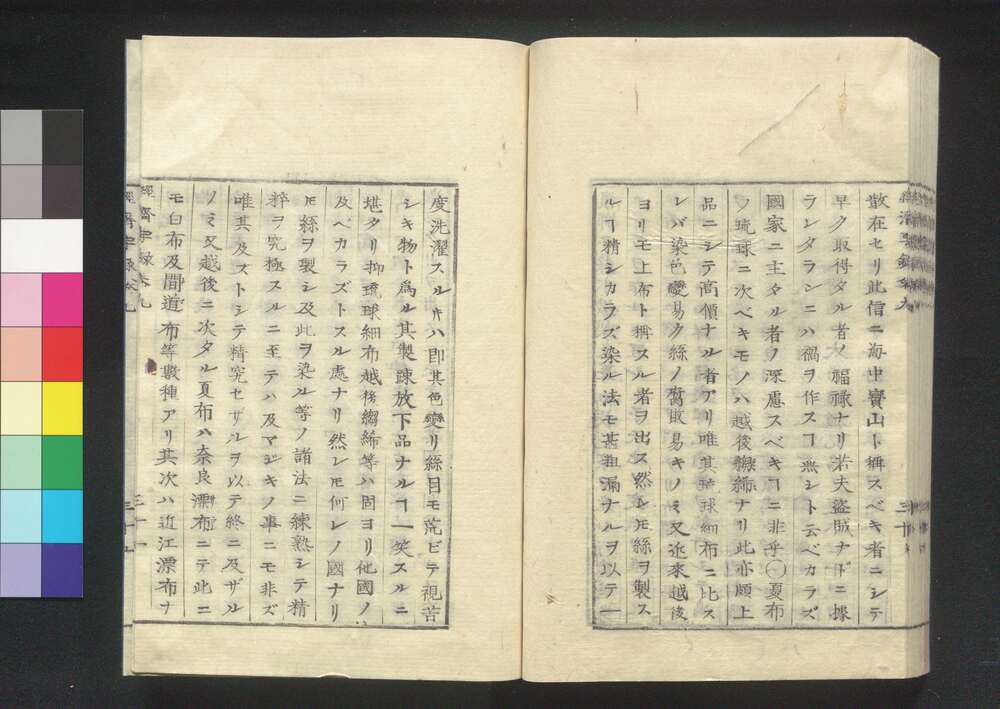 散在セリ此信ニ海中寶山ト稱スベキ者ニシテ
早ク取得タル者ノ福祿ナリ若夫盜賊ナドニ據
ランタランニハ禍ヲ作スヿ無シト云ベカラズ
國家ニ主タル者ノ深慮スベキヿニ非乎〇夏布
ノ琉球ニ次ベキモノハ越後縐絺ナリ此亦頗上
品ニシテ高價ナル者アリ唯其琉球細布ニ比ス
レバ染色變易ク絲ノ腐敗易キノミ又近來越後
ヨリモ上布ト稱スル者ヲ出ス然レ𪜈絲ヲ製ス
ルヿ精シカラズ染ル法モ甚粗漏ナルヲ以テ一
度洗濯スル𪜈ハ即其色變リ絲目モ荒ビテ視苦
シキ物ト爲ル其製踈放下品ナルヿ一笑スルニ
堪タリ抑琉球細布越後縐絺等ハ固ヨリ他國ノ
及ベカラズトスル處ナリ然レ𪜈何レノ國ナリ
𪜈絲ヲ製シ及此ヲ染ル等ノ諸法ニ練熟シテ精
粹ヲ究極スルニ至テハ及マジキノ事ニモ非ズ
唯其及ズトシテ精究セザルヲ以テ終ニ及ザル
ノミ又越後ニ次タル夏布ハ奈良漂布ニテ此ニ
モ白布及間道布等數種アリ其次ハ近江漂布ナ
經濟要錄卷九
三十一